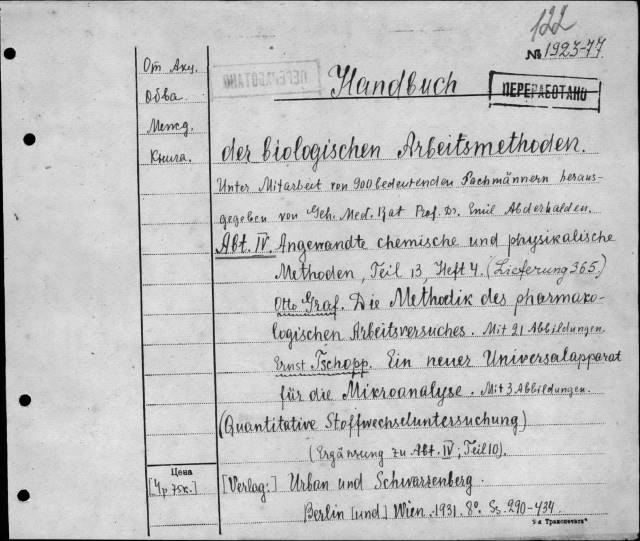 122
№ 1923-77
От Акц.
Обва
Межд.
Книга.
ПЕРЕРАБОТАНО
Handbuch
ПЕРЕРАБОТАНО
der biologischen Arbeitsmethoden.
Unter Mitarbeit von 900 bedeutenden Fachmännern heraus-
gegeben von Geh. Med. Rat Prof. Dr. Emil Abderhalden.
Abt. IV. Angewandte chemische und physikalische
Methoden, Teil 13, Heft 4. (Lieferung 365.)
Otto Graf. Die Methodik des pharmako-
logischen Arbeitsversuches. Mit 21 Abbildungen.
Ernst Tschopp. Ein neuer Universalapparat
für die Mikroanalyse. Mit 3 Abbildungen.
(Quantitative Stoffwechseluntersuchung)
(Ergänzung zu Abt. IV; Teil 10).
Цена
[4р 75к.]
[Verlag:] Urban und Schwarzenberg.
Berlin [und] Wien. 1931. 8º. Ss. 290-434.
9-я Транспечать"